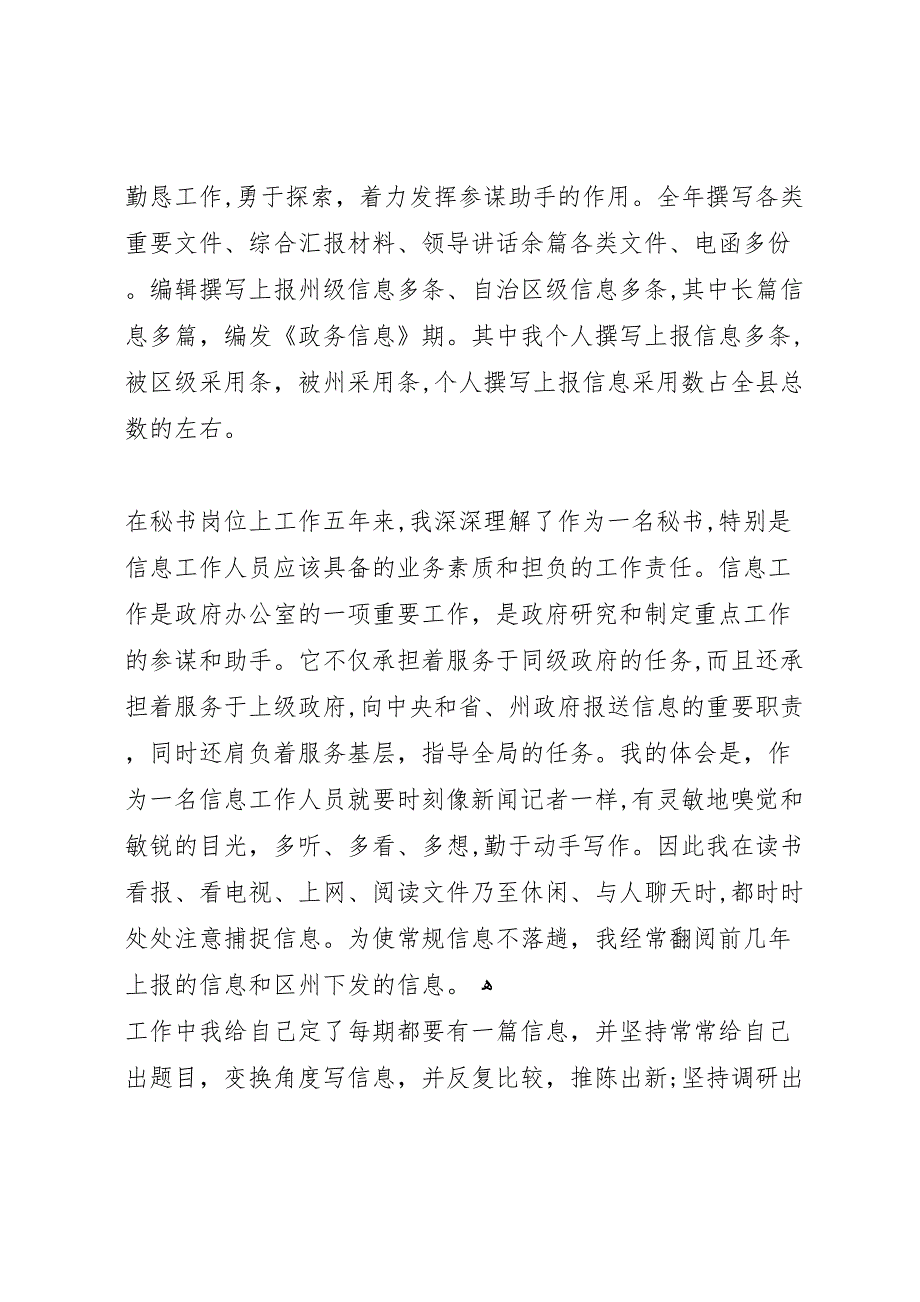 勤恳工作,勇于探索，着力发挥参谋助手的作用。全年撰写各类
重要文件、综合汇报材料、领导讲话余篇各类文件、电函多份
。编辑撰写上报州级信息多条、自治区级信息多条,其中长篇信
息多篇，编发《政务信息》期。其中我个人撰写上报信息多条,
被区级采用条，被州采用条,个人撰写上报信息采用数占全县总
数的左右。
在秘书岗位上工作五年来,我深深理解了作为一名秘书,特别是
信息工作人员应该具备的业务素质和担负的工作责任。信息工
作是政府办公室的一项重要工作，是政府研究和制定重点工作
的参谋和助手。它不仅承担着服务于同级政府的任务,而且还承
担着服务于上级政府,向中央和省、州政府报送信息的重要职责
，同时还肩负着服务基层，指导全局的任务。我的体会是，作
为一名信息工作人员就要时刻像新闻记者一样,有灵敏地嗅觉和
敏锐的目光，多听、多看、多想,勤于动手写作。因此我在读书
看报、看电视、上网、阅读文件乃至休闲、与人聊天时,都时时
处处注意捕捉信息。为使常规信息不落趟，我经常翻阅前几年
上报的信息和区州下发的信息。 ﻫ
工作中我给自己定了每期都要有一篇信息，并坚持常常给自己
出题目，变换角度写信息，并反复比较，推陈出新;坚持调研出